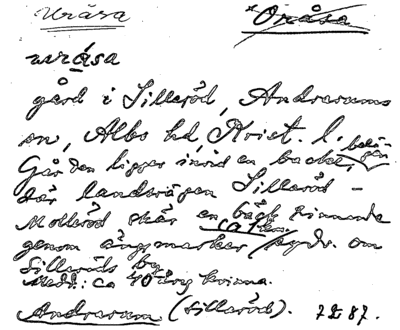 Uråsa *Oråsa
uråsa
gård i Silleröd, Andrarums
sn, Albs hd, Krist. l.
Gården ligger invid en backe, belä-
gen
där landsvägen Silleröd -
Mölleröd skär en bäck rinnande
genom ängsmarker, ca 1 km. sydv. om
Silleröds by.
Medd.: ca 40-årig kvinna.
Andrarum (Silleröd). 87.